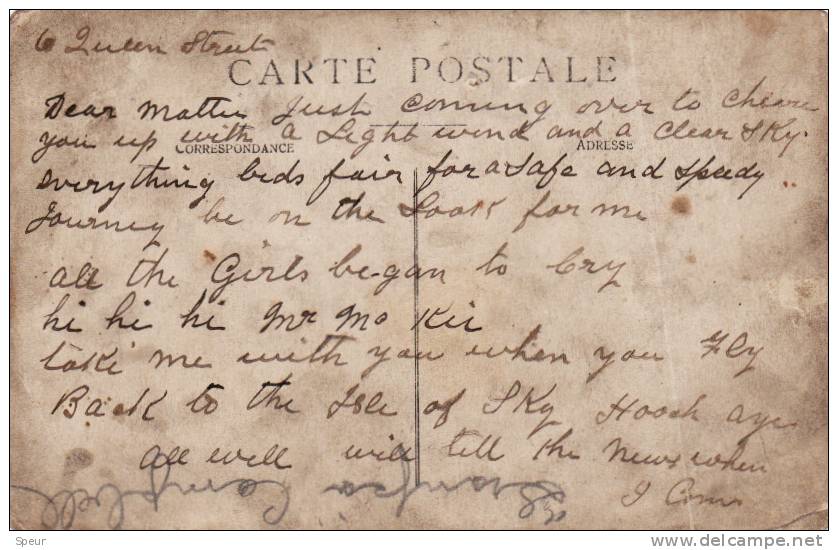 6 Queen Street
CARTE POSTALE
Dear Mattie Just coming over to cheere
you up with a Light wind and a clear Sky.
CORRESPONDANCE ADRESSE
everything bids fair for a safe and speedy
Journey be on the Look for me
all the Girls began to Cry
hi hi hi Mr Mc Kie
take me with you when you Fly
Back to the Isle of Sky Hooch aye
all well will tell the News when
I Come
Campbell
Speur
www.delcampe.net